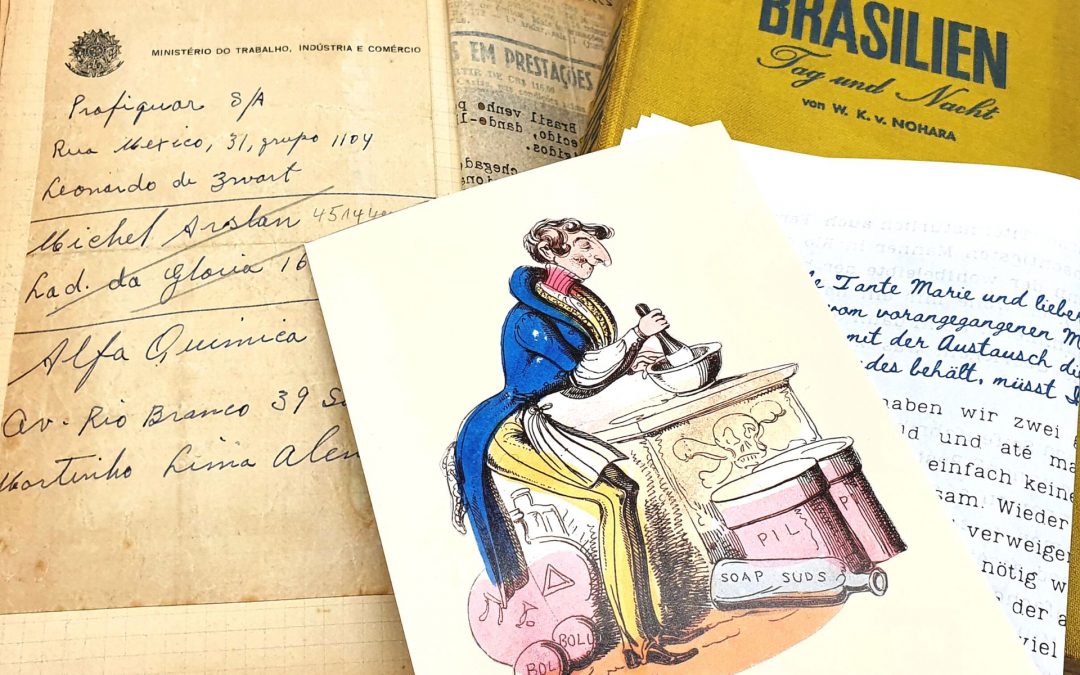 MINISTÉRIO DO TRABALHO, INDÚSTRIA E COMÉRCIO
Profiquar S/A
Rua Mexico, 31, grupo 1104
Leonardo de Zwart
Michel Arslan 45144
Lad. da Gloria 16
Alfa Quimica
Av. Rio Branco 39
Martinho Lima Alen
S EM PRESTAÇÕES
Brasil venho p
ecido, dando-l
ridos.
chegad
BRASILIEN
Tag und Nacht
von W. K. v. NOHARA
e Tante Marie und lieber
vom vorangegangenen M
mit der Austausch di
des behält, müsst I
haben wir zwei a
ld und até ma
einfach keine
sam. Wieder
verweiger
nötig w
der a
viel
PIL
P
SOAP SUDS
BOLU
BOL